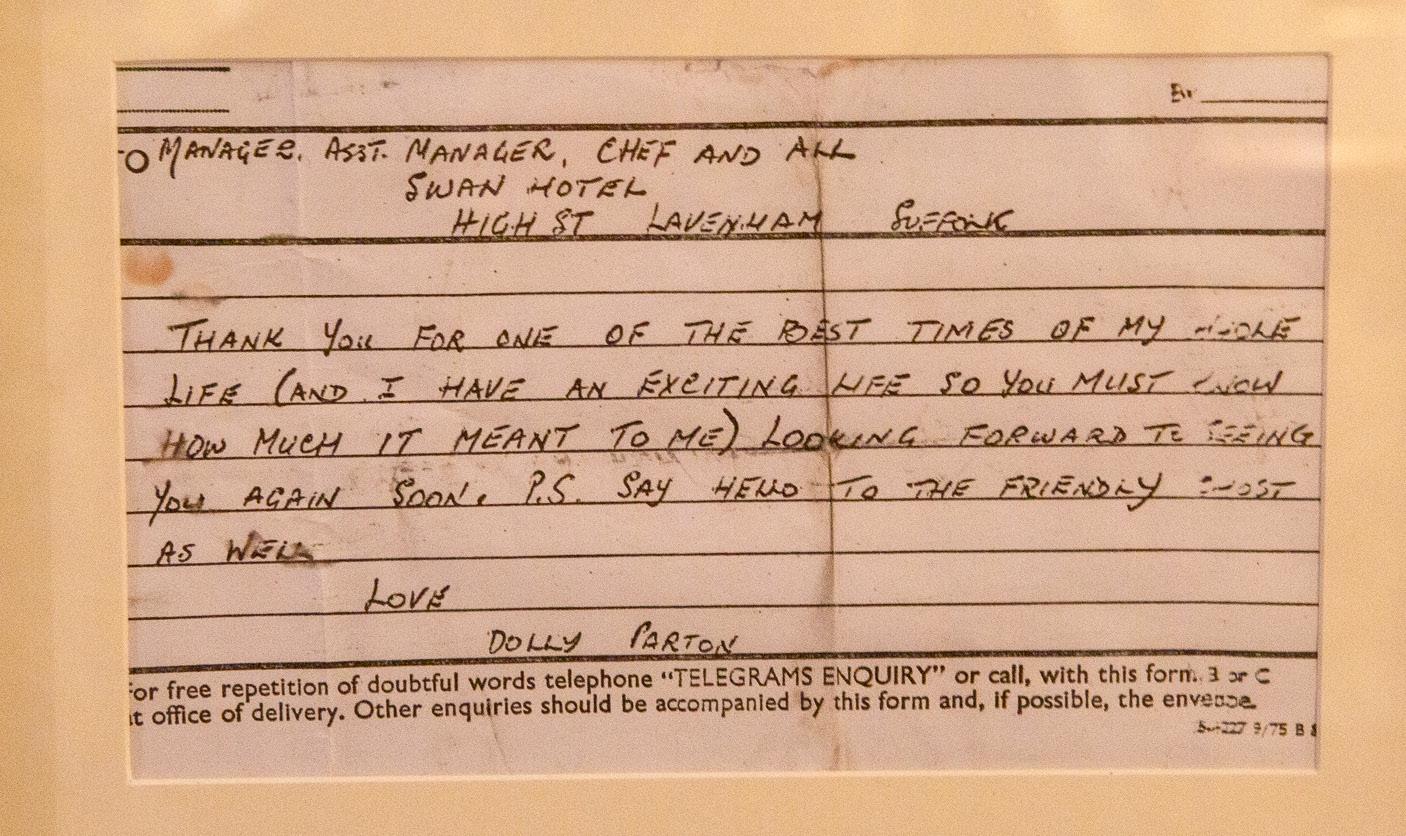 By
TO MANAGER. ASST. MANAGER, CHEF AND ALL
SWAN HOTEL
HIGH ST LAVENHAM SUFFOLK
THANK YOU FOR ONE OF THE BEST TIMES OF MY WHOLE
LIFE (AND I HAVE AN EXCITING LIFE SO YOU MUST KNOW
HOW MUCH IT MEANT TO ME) LOOKING FORWARD TO SEEING
YOU AGAIN SOON. P.S. SAY HELLO TO THE FRIENDLY GHOST
AS WELL
LOVE
DOLLY PARTON
For free repetition of doubtful words telephone “TELEGRAMS ENQUIRY” or call, with this form. B or C
at office of delivery. Other enquiries should be accompanied by this form and, if possible, the envelope.
9/75 B